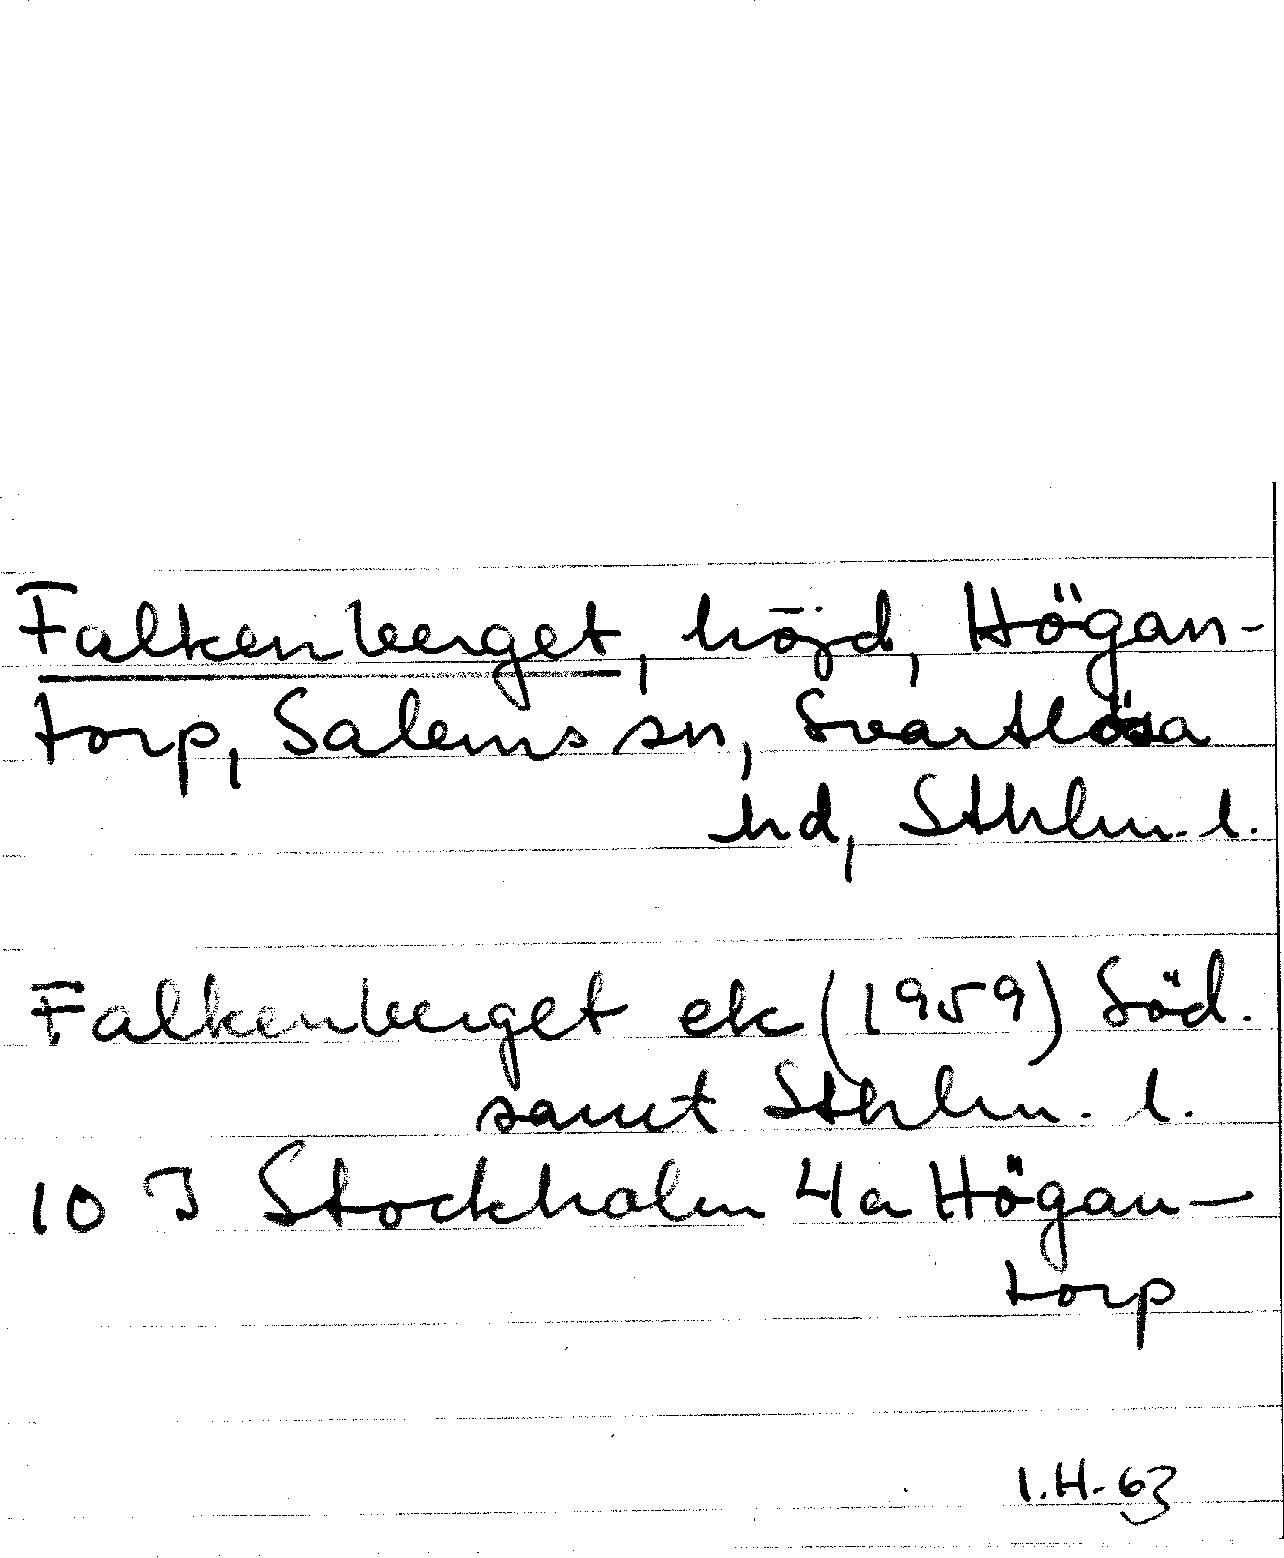 Falkenberget, höjd, Högan-
torp, Salems sn, Svartlösa
hd, Sthlm. l.
Falkenberget ek (1959) Söd.
samt Sthlm. l.
10 I Stockholm 4a Högan-
torp
I.H.-63